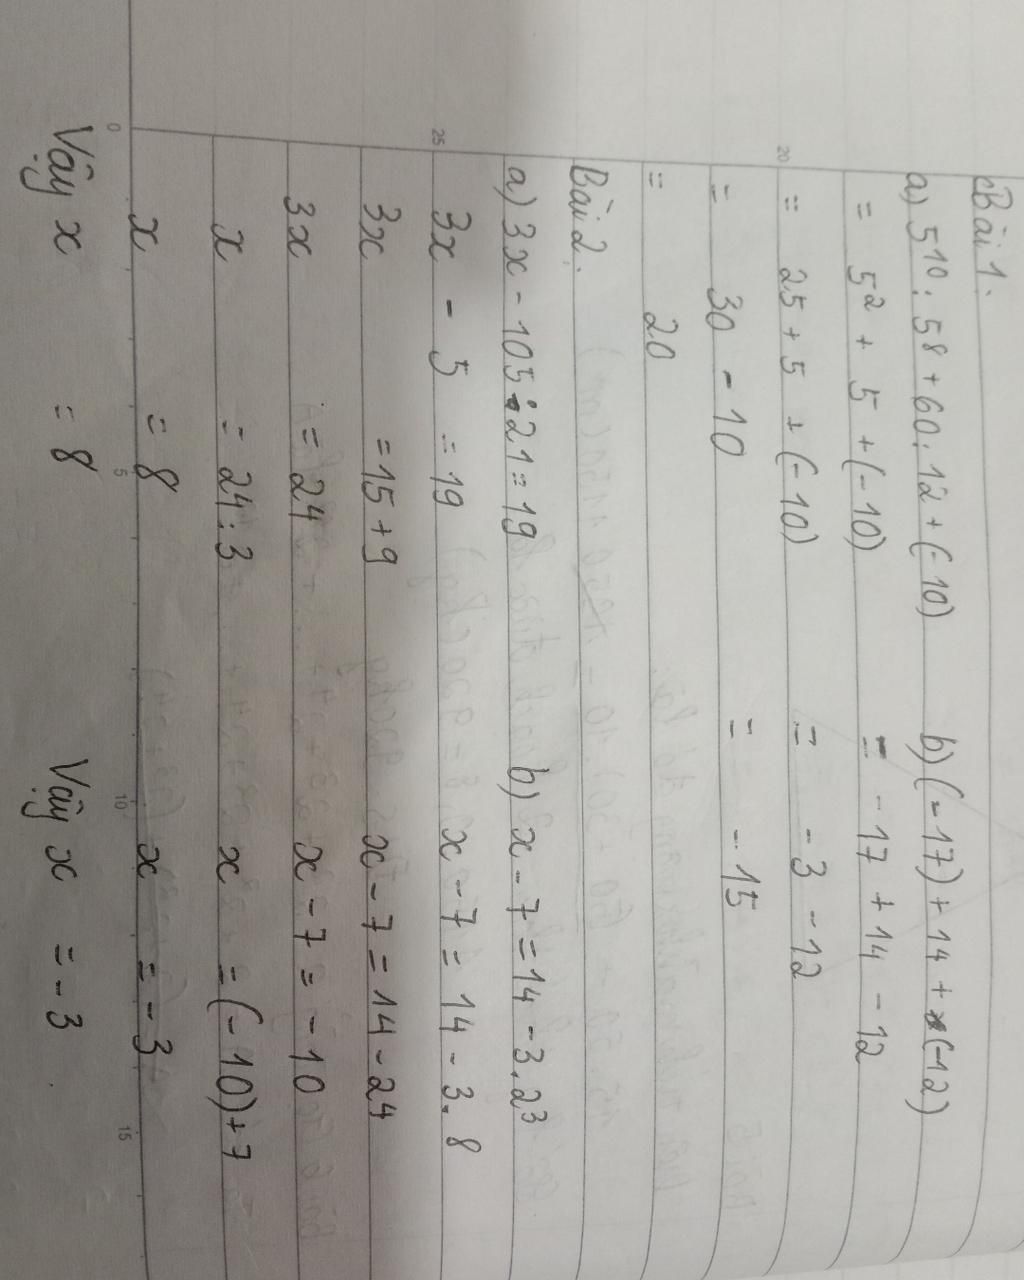 Bài 1:
a) 5¹⁰ : 5⁸ + 60 : 12 + (-10)
= 5² + 5 + (-10)
= 25 + 5 + (-10)
= 30 - 10
= 20
b) (-17) + 14 + (-12)
= -17 + 14 - 12
= -3 - 12
= -15
Bài 2:
a) 3x - 105 : 21 = 19
3x - 5 = 19
3x = 15 + 9
3x = 24
x = 24 : 3
x = 8
Vậy x = 8
b) x - 7 = 14 - 3.2³
x - 7 = 14 - 3.8
x - 7 = 14 - 24
x - 7 = -10
x = (-10) + 7
x = -3
Vậy x = -3
0
5
10
15
20
25